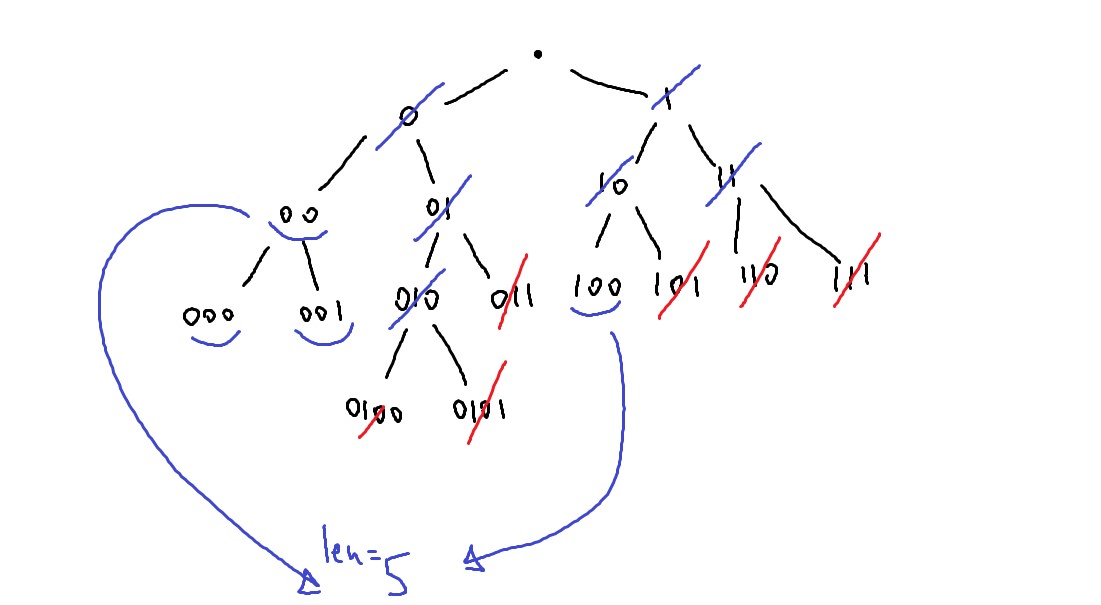 0 1
00 01 10 11
000 001 010 011 100 101 110 111
0100 0101
len=5